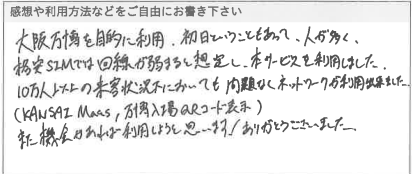 感想や利用方法などをご自由にお書き下さい
大阪万博を目的に利用。初日ということもあって、人が多く、
格安SIMでは回線が弱すると想定し、本サービスを利用しました。
10万人以上の来客状況下においても問題なくネットワークが利用出来ました。
(KANSAI Maas, 万博入場QRコード表示)
また機会があれば利用しようと思います!ありがとうございました。